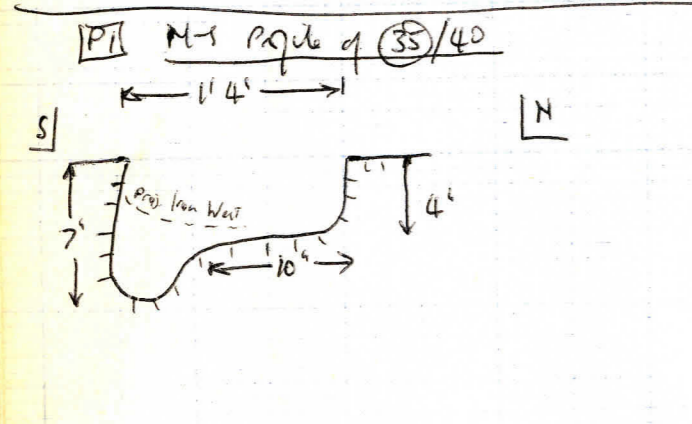 P1 N-S Profile of 35/40
1' 4"
S N
Proj. from West
7" 4"
10"